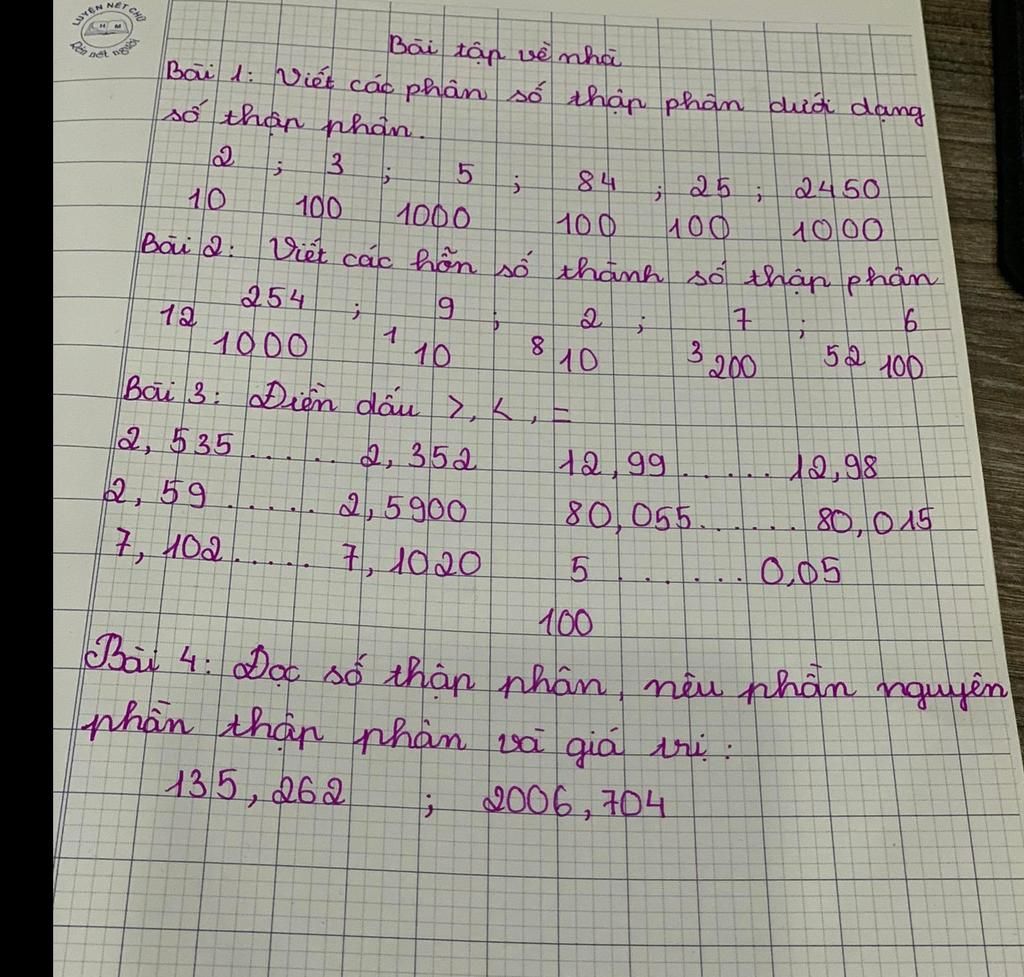 LUYỆN NÉT CHỮ
H M
Rèn nết người
Bài tập về nhà
Bài 1: Viết các phân số thập phân dưới dạng
số thập phân.
2 ; 3 ; 5 ; 84 ; 25 ; 2450
10 100 1000 100 100 1000
Bài 2: Viết các hỗn số thành số thập phân
254 ; 9 ; 2 ; 7 ; 6
12 1000 1 10 8 10 3 200 52 100
Bài 3: Điền dấu >, <, =
2,535 ...... 2,352 12,99 ...... 12,98
2,59 ...... 2,5900 80,055 ...... 80,015
7,102 ..... 7,1020 5 ...... 0,05
100
Bài 4: Đọc số thập phân, nêu phần nguyên
phần thập phân và giá trị:
135,262 ; 2006,704